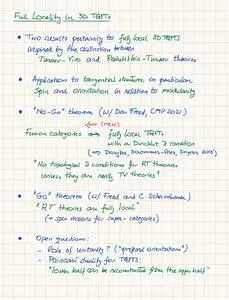 Full Locality in 3D TQFTs
• Two results pertaining to fully local 3D TQFTs
inspired by the distinction between
Turaev-Viro and Reshetikhin-Turaev theories
• Application to tangential structures, in particular
Spin and orientation in relation to modularity
• "No-Go" theorem (w/ Dan Freed, CMP 2021)
⇐ (new)
Fusion categories ⇔ fully local TQFTs
with a Dirichlet ∂ condition
(⇒ Douglas, Schommer-Pries, Snyder 2013)
"No topological ∂ conditions for RT theories
unless they are really TV theories"
• "Go" theorem (w/ Freed and C. Scheimbauer)
"RT theories are fully local"
(+ spin versions for super-categories)
• Open questions:
- Role of unitarity? ("preferred orientations")
- Poincaré duality for TQFTs:
"lower half can be reconstructed from the upper half"